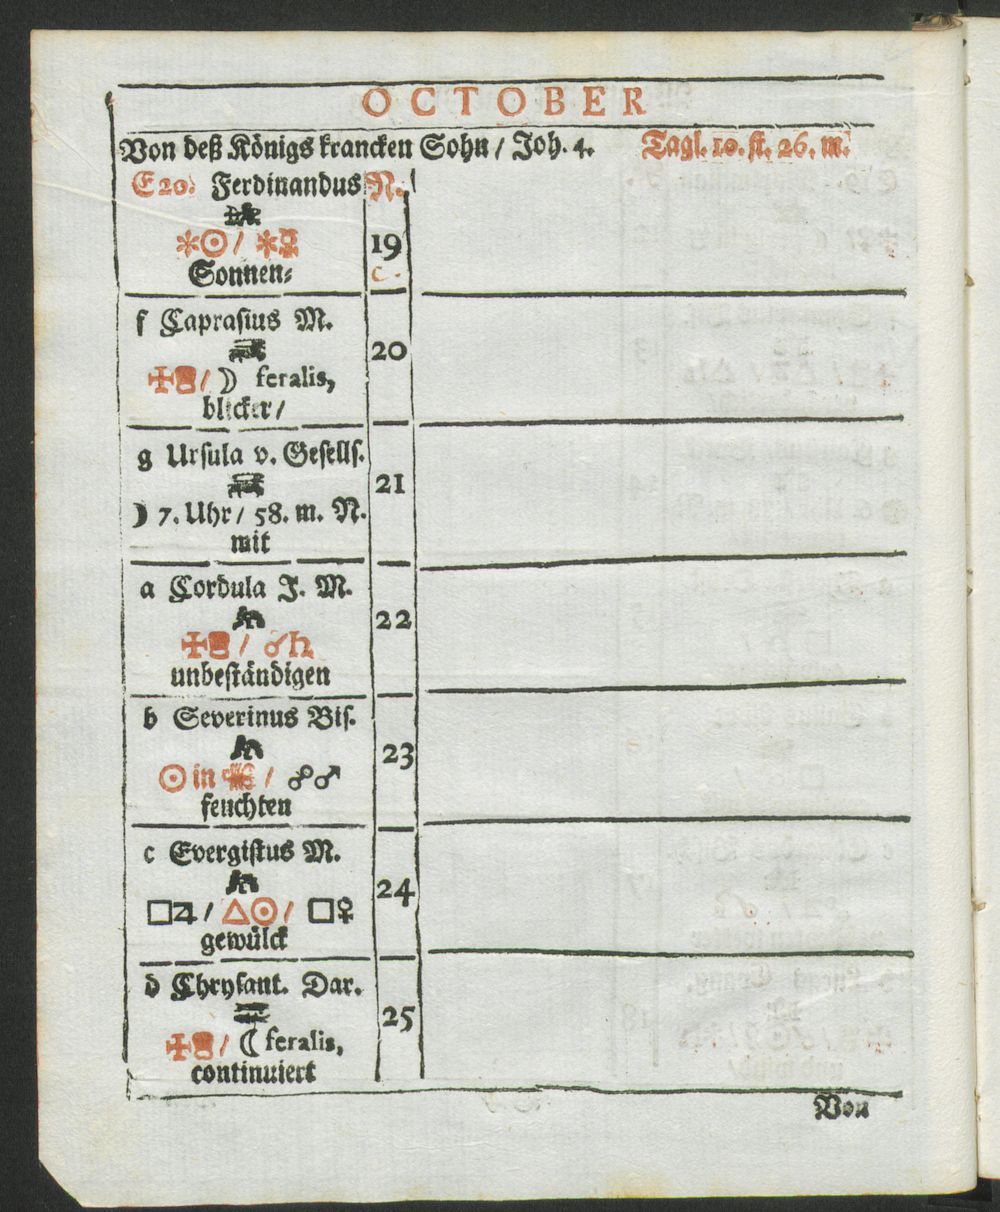 OCTOBER
Von deß Königs krancken Sohn / Joh. 4. Tagl. 10. st. 26. m.
E 20. Ferdinandus N.
✶☉ / ✶☿ 19
Sonnen⸗
f Caprasius M.
20
/ ☽ feralis,
blicker /
g Ursula v. Gesells.
21
☽ 7. Uhr / 58. m. N.
mit
a Cordula J. M.
22
/ ☌♄
unbeständigen
b Severinus Bis.
23
☉ in / ☍♂
feuchten
c Evergistus M.
24
□♃ / △☉ / □♀
gewülck
d Chrysant. Dar.
25
/ ☾ feralis,
continuiert
Von